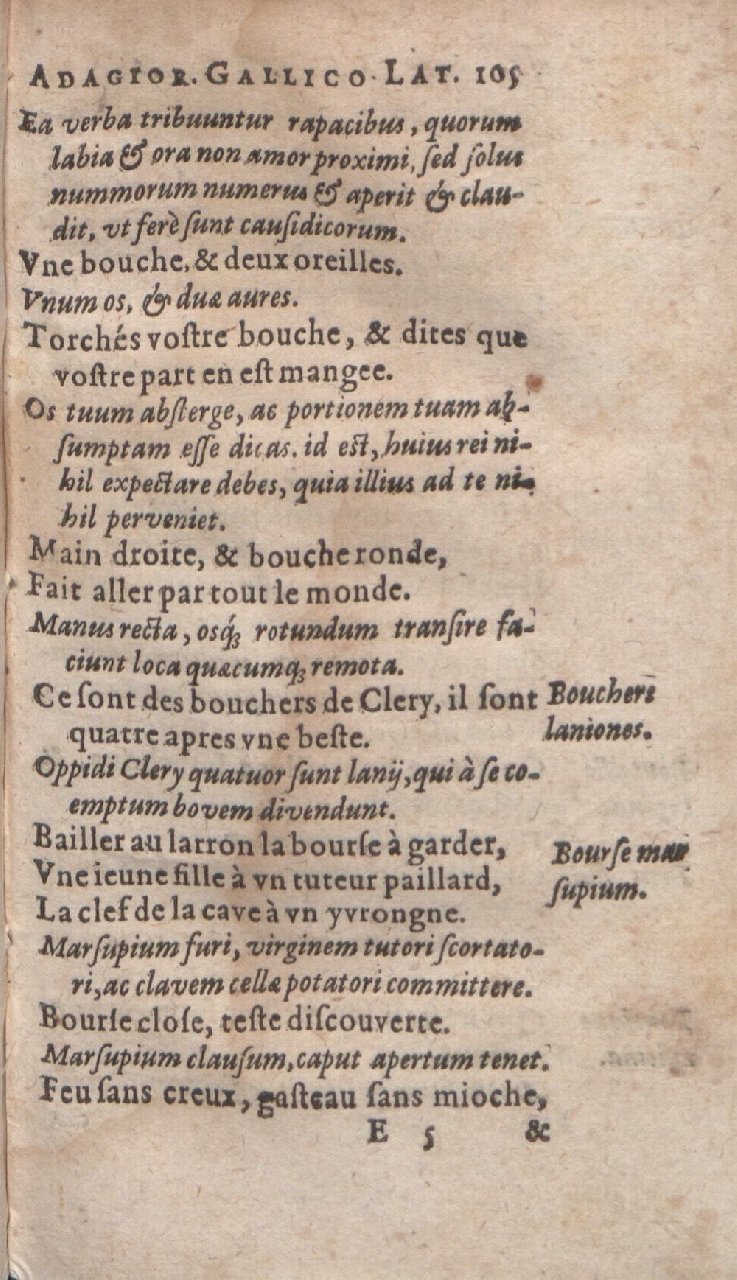 ADAGIOR. GALLICO. LAT. 105
Ea verba tribuuntur rapacibus, quorum
labia & ora non amor proximi, ſed ſolus
nummorum numerus & aperit & clau-
dit, vt ferè ſunt cauſidicorum.
Vne bouche, & deux oreilles.
Vnum os, & duæ aures.
Torchés voſtre bouche, & dites que
voſtre part en eſt mangee.
Os tuum abſterge, ac portionem tuam ab-
ſumptam eſſe dicas. id eſt, huius rei ni-
hil expectare debes, quia illius ad te ni-
hil perveniet.
Main droite, & bouche ronde,
Fait aller par tout le monde.
Manus recta, osq́ꝫ rotundum tranſire fa-
ciunt loca quæcumqꝫ remota.
Ce ſont des bouchers de Clery, il ſont
quatre apres vne beſte.
Bouchers
laniones.
Oppidi Clery quatuor ſunt lanij, qui à ſe co-
emptum bovem divendunt.
Bailler au larron la bourſe à garder,
Vne ieune fille à vn tuteur paillard,
La clef de la cave à vn yvrongne.
Bourſe mar
ſupium.
Marſupium furi, virginem tutori ſcortato-
ri, ac clavem cellæ potatori committere.
Bourſe cloſe, teſte diſcouverte.
Marſupium clauſum, caput apertum tenet.
Feu ſans creux, gaſteau ſans mioche,
E 5 &